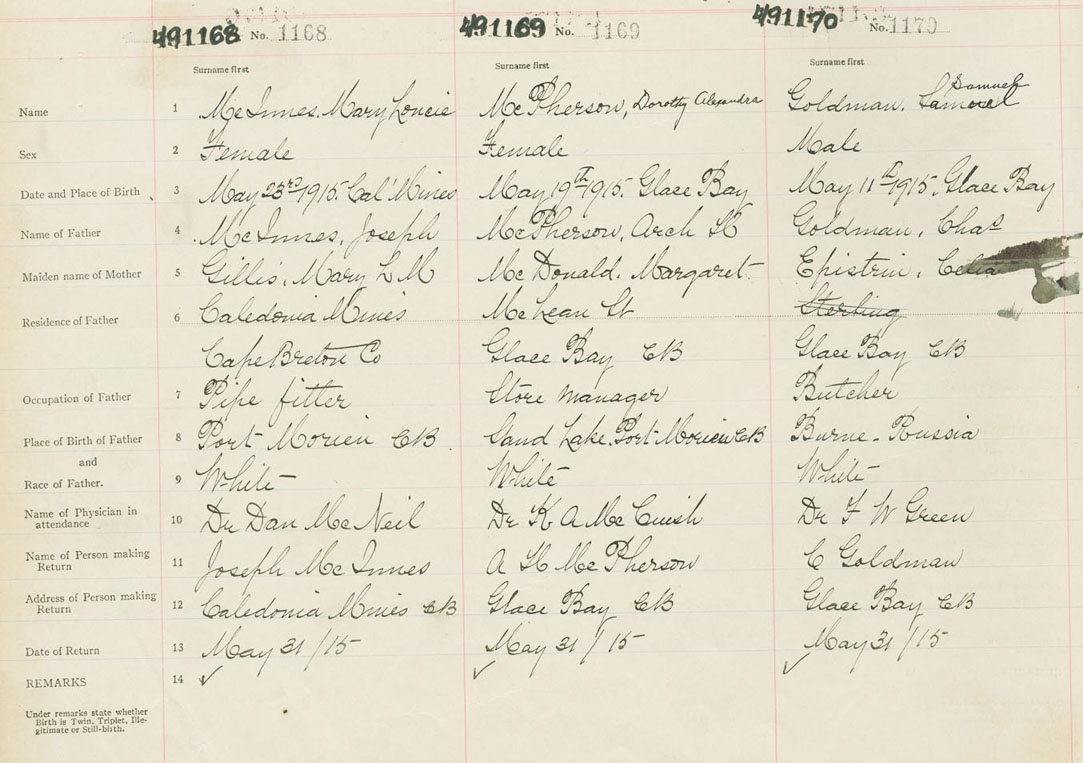 491168 No. 1168 491169 No. 1169 491170 No. 1170
Surname first Surname first Surname first
Samuel
Name 1 McInnes. Mary Loucie McPherson, Dorothy Alexandra Goldman. Samuel
Sex 2 Female Female Male
Date and Place of Birth 3 May 23rd 1915. Cal' Mines May 19th 1915. Glace Bay May 11th 1915. Glace Bay
Name of Father 4 McInnes, Joseph McPherson, Arch H Goldman, Chas
Maiden name of Mother 5 Gillis, Mary L M McDonald. Margaret Epistein, Celia
Residence of Father 6 Caledonia Mines McLean St Sterling
Cape Breton Co Glace Bay CB Glace Bay CB
Occupation of Father 7 Pipe fitter Store Manager Butcher
Place of Birth of Father 8 Port Morien CB Sand Lake. Port Morien CB Burne - Russia
and
Race of Father. 9 White White White
Name of Physician in
attendance 10 Dr Dan McNeil Dr K A McCuish Dr F W Green
Name of Person making
Return 11 Joseph McInnes A H McPherson C Goldman
Address of Person making
Return 12 Caledonia Mines CB Glace Bay CB Glace Bay CB
Date of Return 13 May 31/15 May 31/15 May 31/15
REMARKS 14 ✓ ✓ ✓
Under remarks state whether
Birth is Twin, Triplet, Ille-
gitimate or Still-birth.